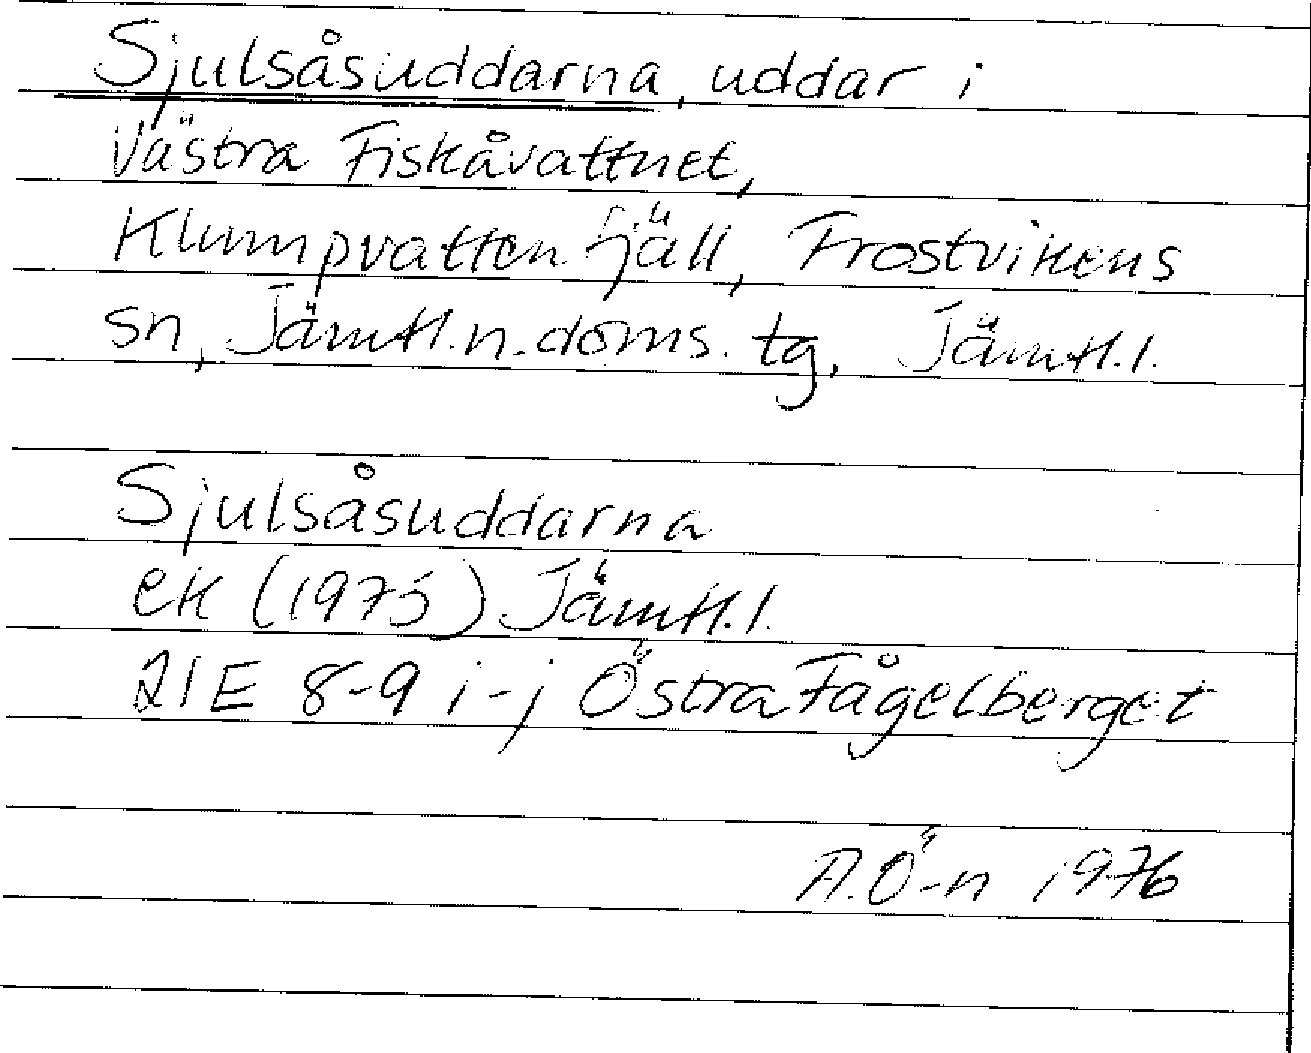 Sjulsåsuddarna, uddar i
Västra Fiskåvattnet,
Klumpvatten fjäll, Frostvikens
sn, Jämtl.n.doms.tg, Jämtl.l.
Sjulsåsuddarna
ek (1975) Jämtl.l.
21E 8-9 i-j Östra Fågelberget
A.Ö-n 1976